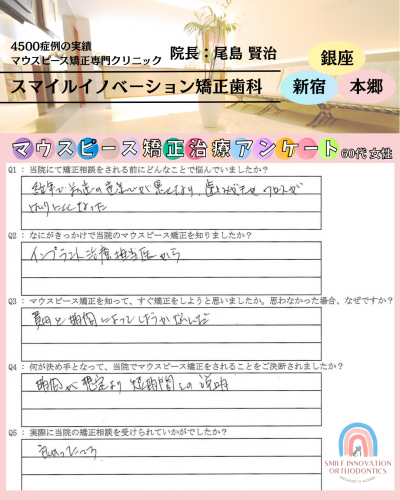 4500症例の実績
マウスピース矯正専門クリニック
院長：尾島 賢治
スマイルイノベーション矯正歯科
銀座
新宿
本郷
マウスピース矯正治療アンケート 60代 女性
Q1 : 当院にて矯正相談をされる前にどんなことで悩んでいましたか？
が悪くなり、歯みがきやフロスが
けりにくくなった
Q2 : なにがきっかけで当院のマウスピース矯正を知りましたか？
インプラント治療担当医から
Q3 : マウスピース矯正を知って、すぐ矯正をしようと思いましたか。思わなかった場合、なぜですか？
費用と期間によってしようかなやんだ
Q4 : 何が決め手となって、当院でマウスピース矯正をされることをご決断されましたか？
期間が想定より短期間との説明
Q5 : 実際に当院の矯正相談を受けられていかがでしたか？
SMILE INNOVATION
ORTHODONTICS